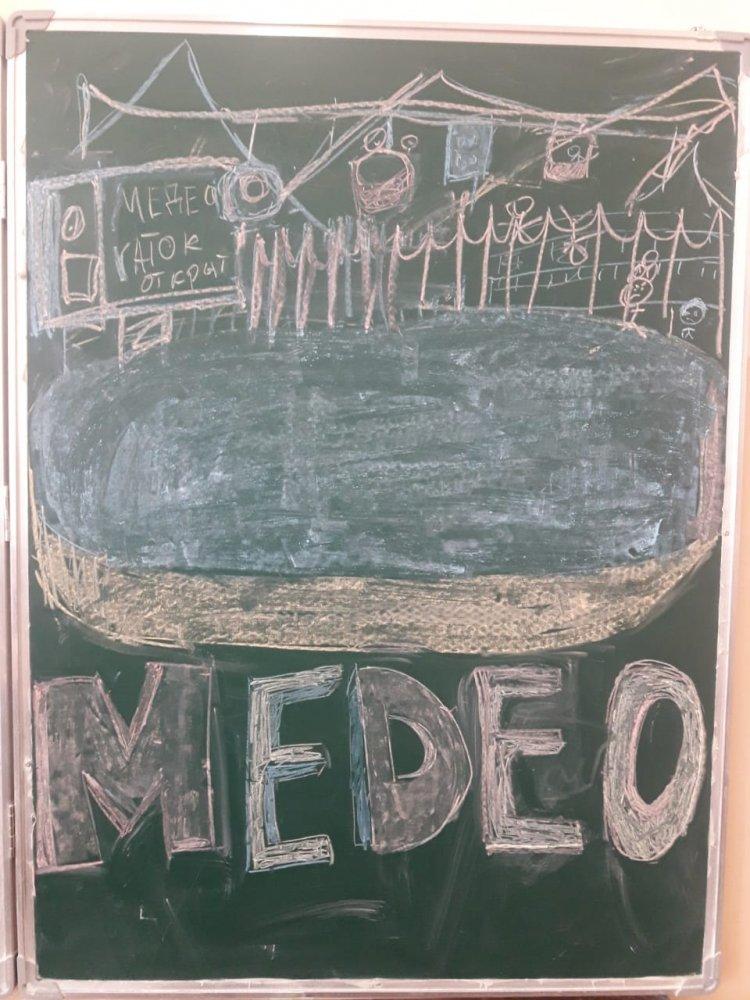 МЕДЕО
КАТОК
ОТКРЫТ
MEDEO